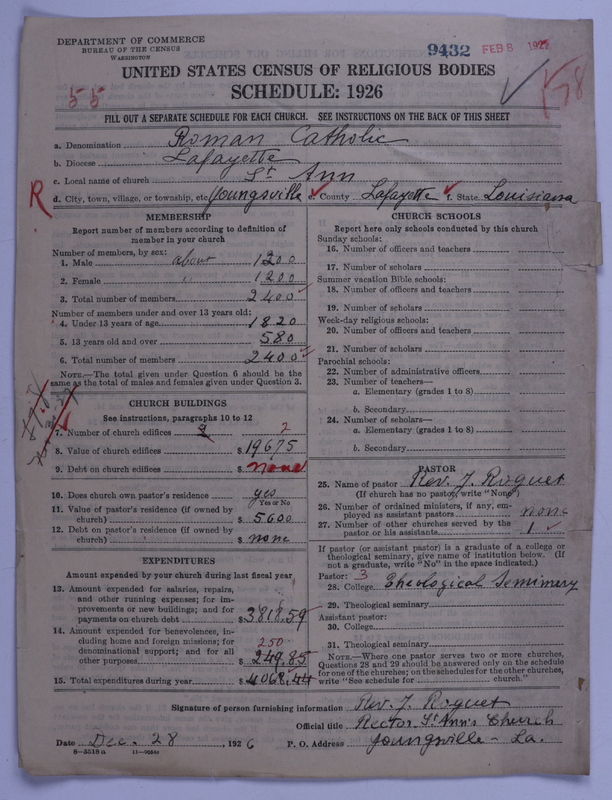 DEPARTMENT OF COMMERCE
BUREAU OF THE CENSUS
WASHINGTON
9432 FEB 8 1927
UNITED STATES CENSUS OF RELIGIOUS BODIES
55
SCHEDULE: 1926
FILL OUT A SEPARATE SCHEDULE FOR EACH CHURCH. SEE INSTRUCTIONS ON THE BACK OF THIS SHEET
a. Denomination Roman Catholic
b. Diocese Lafayette
c. Local name of church St Ann
R d. City, town, village, or township, etc. Youngsville e. County Lafayette f. State Louisiana
MEMBERSHIP
Report number of members according to definition of
member in your church
Number of members, by sex:
1. Male about 1200
2. Female " 1200
3. Total number of members 2400
Number of members under and over 13 years old:
4. Under 13 years of age 1820
5. 13 years old and over 580
6. Total number of members 2400
NOTE.—The total given under Question 6 should be the
same as the total of males and females given under Question 3.
CHURCH BUILDINGS
See instructions, paragraphs 10 to 12
7. Number of church edifices 2
8. Value of church edifices $ 19675
9. Debt on church edifices $ none
10. Does church own pastor's residence yes
Yes or No
11. Value of pastor's residence (if owned by
church) $ 5600
12. Debt on pastor's residence (if owned by
church) $ none
EXPENDITURES
Amount expended by your church during last fiscal year
13. Amount expended for salaries, repairs,
and other running expenses; for im-
provements or new buildings; and for
payments on church debt $ 3818.59
14. Amount expended for benevolences, in-
cluding home and foreign missions; for
denominational support; and for all 250
other purposes $ 249.85
15. Total expenditures during year $ 4068.44
CHURCH SCHOOLS
Report here only schools conducted by this church
Sunday schools:
16. Number of officers and teachers
17. Number of scholars
Summer vacation Bible schools:
18. Number of officers and teachers
19. Number of scholars
Week-day religious schools:
20. Number of officers and teachers
21. Number of scholars
Parochial schools:
22. Number of administrative officers
23. Number of teachers—
a. Elementary (grades 1 to 8)
b. Secondary
24. Number of scholars—
a. Elementary (grades 1 to 8)
b. Secondary
PASTOR
25. Name of pastor Rev. J. Roguet
(If church has no pastor, write "None")
26. Number of ordained ministers, if any, em-
ployed as assistant pastors none
27. Number of other churches served by the
pastor or his assistants 1
If pastor (or assistant pastor) is a graduate of a college or
theological seminary, give name of institution below. (If
not a graduate, write "No" in the space indicated.)
Pastor: 3
28. College Theological Semimery
29. Theological seminary
Assistant pastor:
30. College
31. Theological seminary
NOTE.—Where one pastor serves two or more churches,
Questions 28 and 29 should be answered only on the schedule
for one of the churches; on the schedules for the other churches,
write "See schedule for church."
Signature of person furnishing information Rev. J. Roguet
Official title Rector St Ann's Church
Date Dec. 28 , 1926 P. O. Address Youngsville - La.
8-3518a